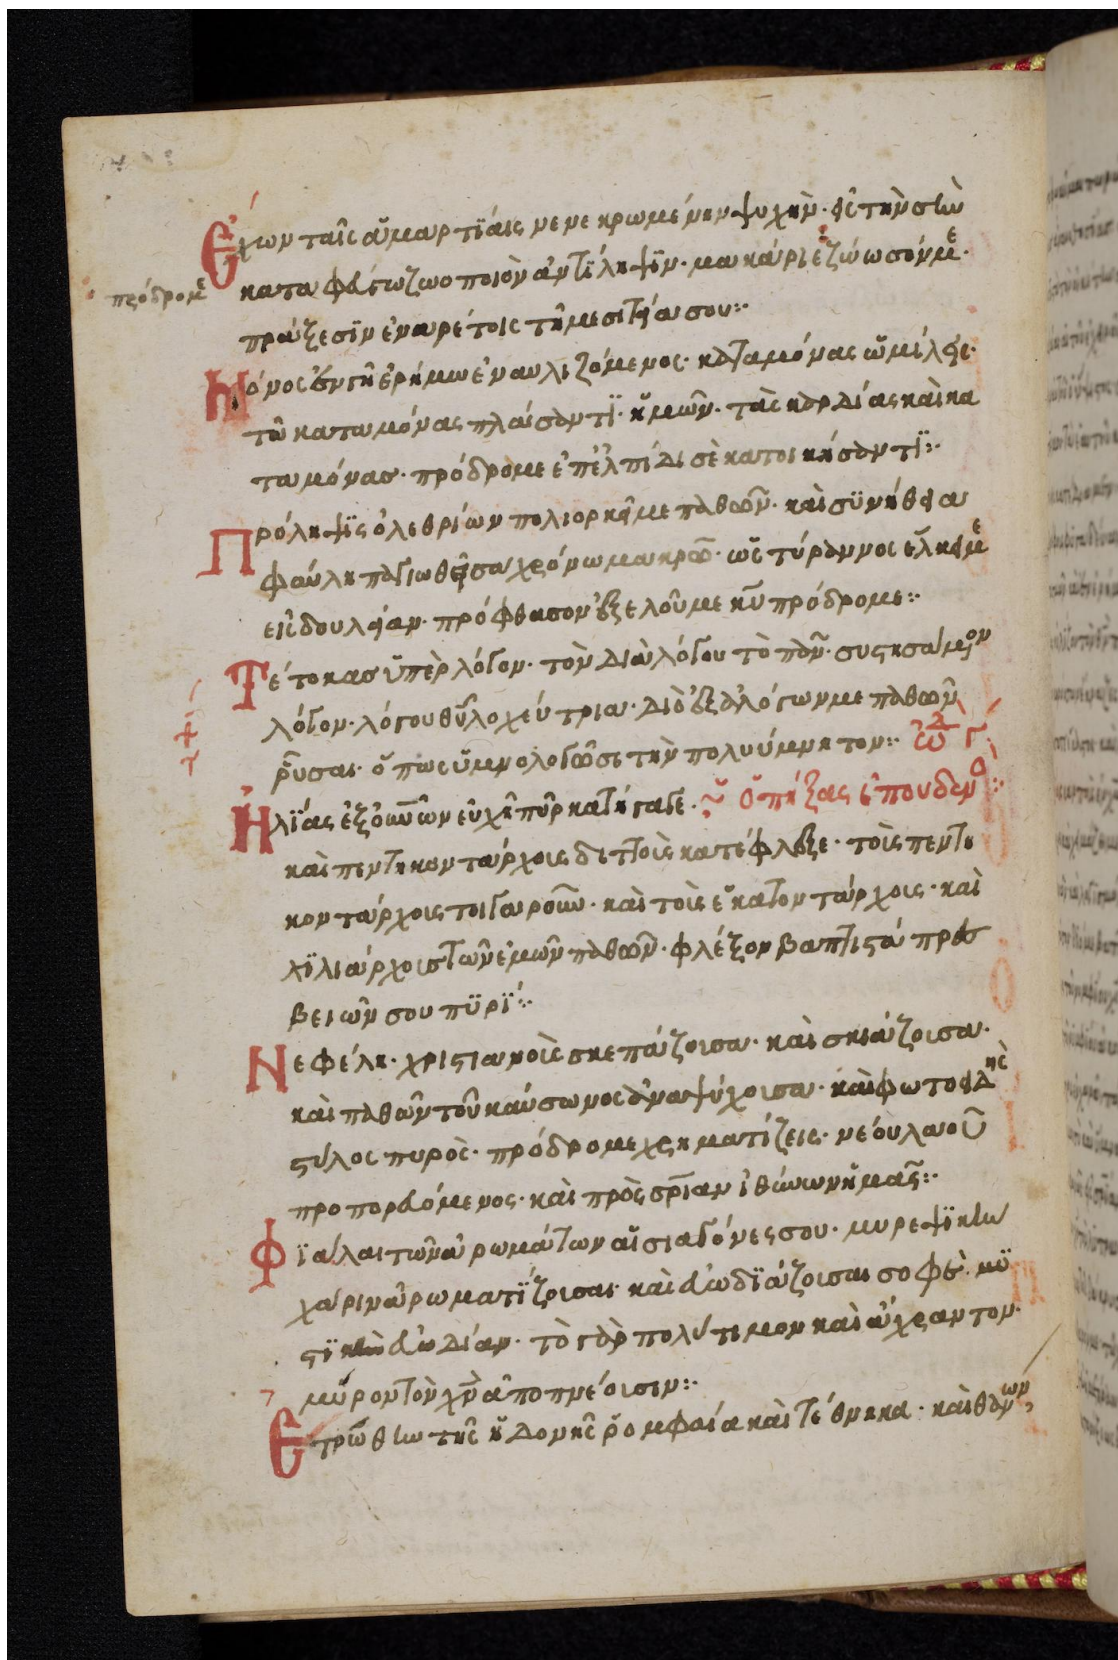 Ἔχων ταῖς ἁμαρτΐαις νενεκρωμένην ψυχὴν· εἰς τὴν σὴν
καταφεύγω ζωοποιὸν ἀντΐληψϊν· μακάριε ζώωσόν με·
πρόδρομε
πράξεσϊν ἐναρέτοις τῇ μεσιτεία σου:·
Μόνος ἐν τῇ ἐρήμω ἐναυλιζόμενος· καταμόνας ὡμίλεις·
τῶ καταμόνας πλάσαντϊ· ἡμῶν· τὰς καρδίας καὶ κα
ταμόνασ· πρόδρομε ἐπ' ἐλπίδι σὲ κατοικήσαντϊ:·
Πρόληψϊς ὀλεθρίων πολιορκεῖ με παθῶν· καὶ συνήθεια
φαύλη παγιωθεῖσα χρόνω μακρῶ· ὡς τύραννος ἕλκει με
εἰς δουλείαν· πρόφθασον ἐξελοῦ με κήρυξ πρόδρομε:·
Τέτοκας ὑπὲρ λόγον· τὸν διὰ λόγου τὸ πᾶν· συστησάμενον
λόγον· λόγου θεοῦ λοχεύτρια· διὸ ἐξ ἀλόγων με παθῶν
ῥῦσαι· ὅπως ὑμνολογῶ σε τὴν πολυύμνητον:· ὠδ γ
Ἠλΐας ἐξ οὐνῶν εὐχῇ πῦρ κατήγαγε· Ὁ πήξας ἐπ' οὐδενὸς:
καὶ πεντηκοντάρχοις διττοῖς κατέφλεξε· τοῖς πεντη
κοντάρχοις τοιγαροῦν· καὶ τοῖς ἑκατοντάρχοις· καὶ
χϊλιάρχοις τῶν ἐμῶν παθῶν· φλέξον βαπτιστὰ πρεσ
βειῶν σου πϋρΐ:·
Νεφέλη· χριστιανοῖς σκεπάζουσα· καὶ σκιάζουσα·
καὶ παθῶν τοῦ καύσωνος ἀναψύχουσα· καὶ φωτοειδὴς
στύλος πυρὸς· πρόδρομε χρηματίζεις· νέου λαοῦ
προπορευόμενος· καὶ πρὸς σρίαν ἰθύνων ἡμᾶς:·
Φϊάλαι τῶν ἀρωμάτων αἱ σιαγόνες σου· μυρεψϊκὴν
χάριν ἀρωματΐζουσαι· καὶ εὐωδϊάζουσαι σοφὲ· μϋ
στϊκὴν εὐωδίαν· τὸ γὰρ πολύτιμον καὶ ἄχραντον·
μύρον τὸν χν ἀποπνέουσιν:·
Ἐτρώθην τῆς ἡδονῆς ῥομφαία καὶ τέθνηκα· καὶ θανὼν